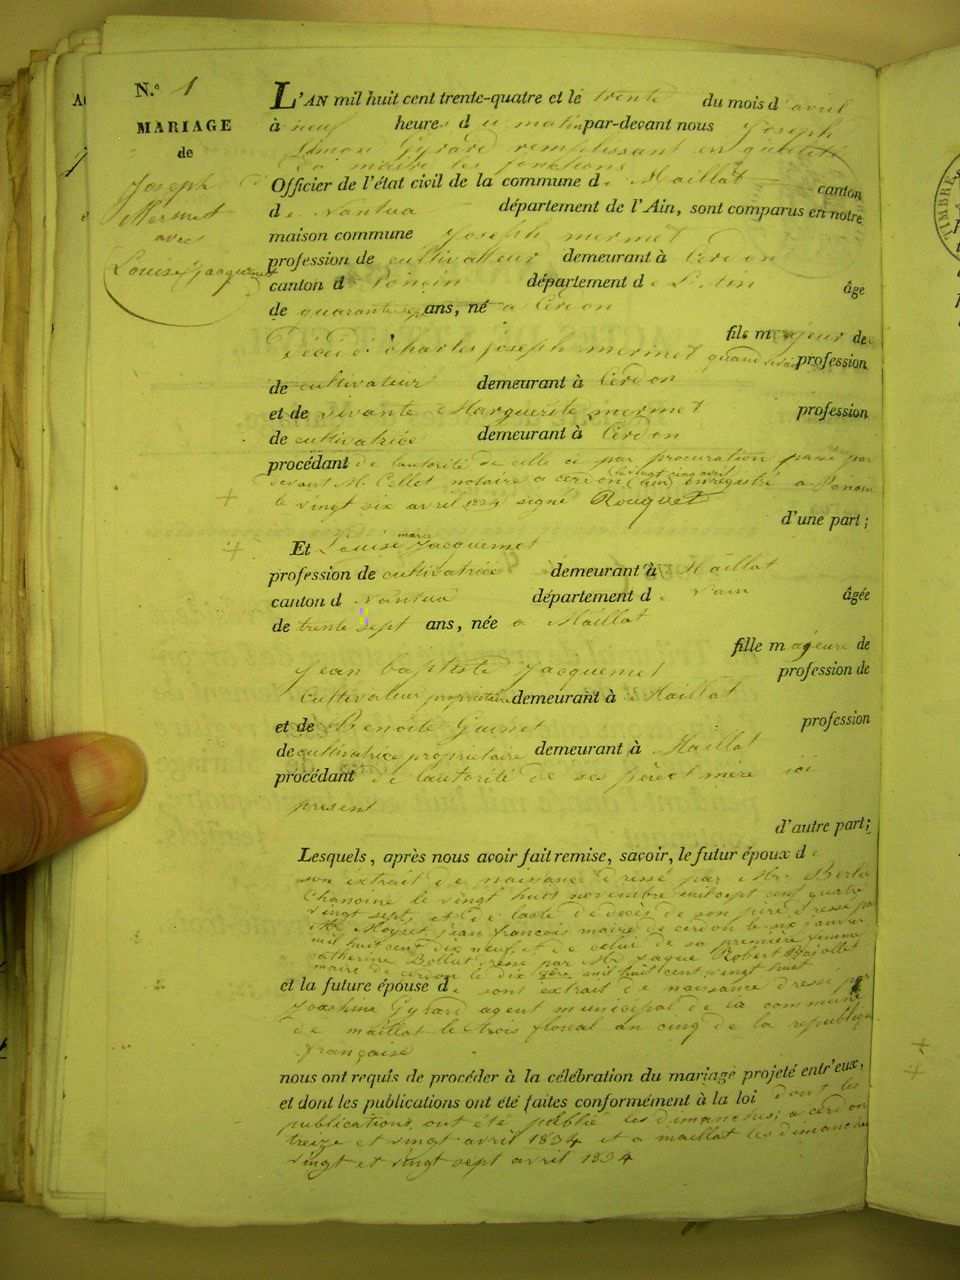 N.º 1
MARIAGE
de
Joseph
Mermet
avec
Louise Jacquemet
L'AN mil huit cent trente-quatre et le trente du mois d'avril
à neuf heures du matin par-devant nous Joseph
Simon Gyrard remplissant en qualité
de maire les fonctions
Officier de l'état civil de la commune de Maillat canton
de Nantua département de l'Ain, sont comparus en notre
maison commune Joseph mermet
profession de cultivateur demeurant à Cerdon
canton de Poncin département de L'Ain âgé
de quarante sept ans, né a Cerdon
fils majeur de
Charles joseph mermet quand vivait profession
de cultivateur demeurant à Cerdon
et de vivante Marguerite mermet profession
de cultivatrice demeurant à Cerdon
procédant de lautorité de celle ci par procuration passé par
devant M. Collet notaire a cerdon le vingt cinq avril (ain) enregistré a Poncin
le vingt six avril 1834 signé Rouquet
d'une part ;
Et Louise marie Jacquemet
profession de cultivatrice demeurant à Maillat
canton d Nantua département de Lain âgée
de trente sept ans, née a Maillat
fille mageure de
Jean baptiste Jacquemet profession de
Cultivateur proprietaire demeurant à Maillat
et de Benoite Guinet profession
de cultivatrice propriétaire demeurant à Maillat
procédant de lautorité de ses père et mère ici
present
d'autre part ;
Lesquels, après nous avoir fait remise, savoir, le futur époux de
son extrait de naissance dressé par Mr Berlie
Chanoine le vingt huit novembre mil sept cent quatre
vingt sept, et de lacte de décès de son père dressé par
Mr Moyret jean francois maire de cerdon le six janvier
mil huit cent dix neuf, et de celui de sa première femme
catherine Bollat, par Mr Jaque Robert Bajollet
maire de cerdon le dix mil huit cent vingt huit
et la future épouse de sont extrait de naissance dressé par
Joachim Gyrard agent municipal de la commune
de maillat le trois floreal an cinq de la republique
française
nous ont requis de procéder à la célébration du mariage projeté entr'eux,
et dont les publications ont été faites conformément à la loi dont les
publications ont été publié les dimanches, a cerdon
treize et vingt avril 1834 et a maillat les dimanches
vingt et vingt sept avril 1834
TIMBRE